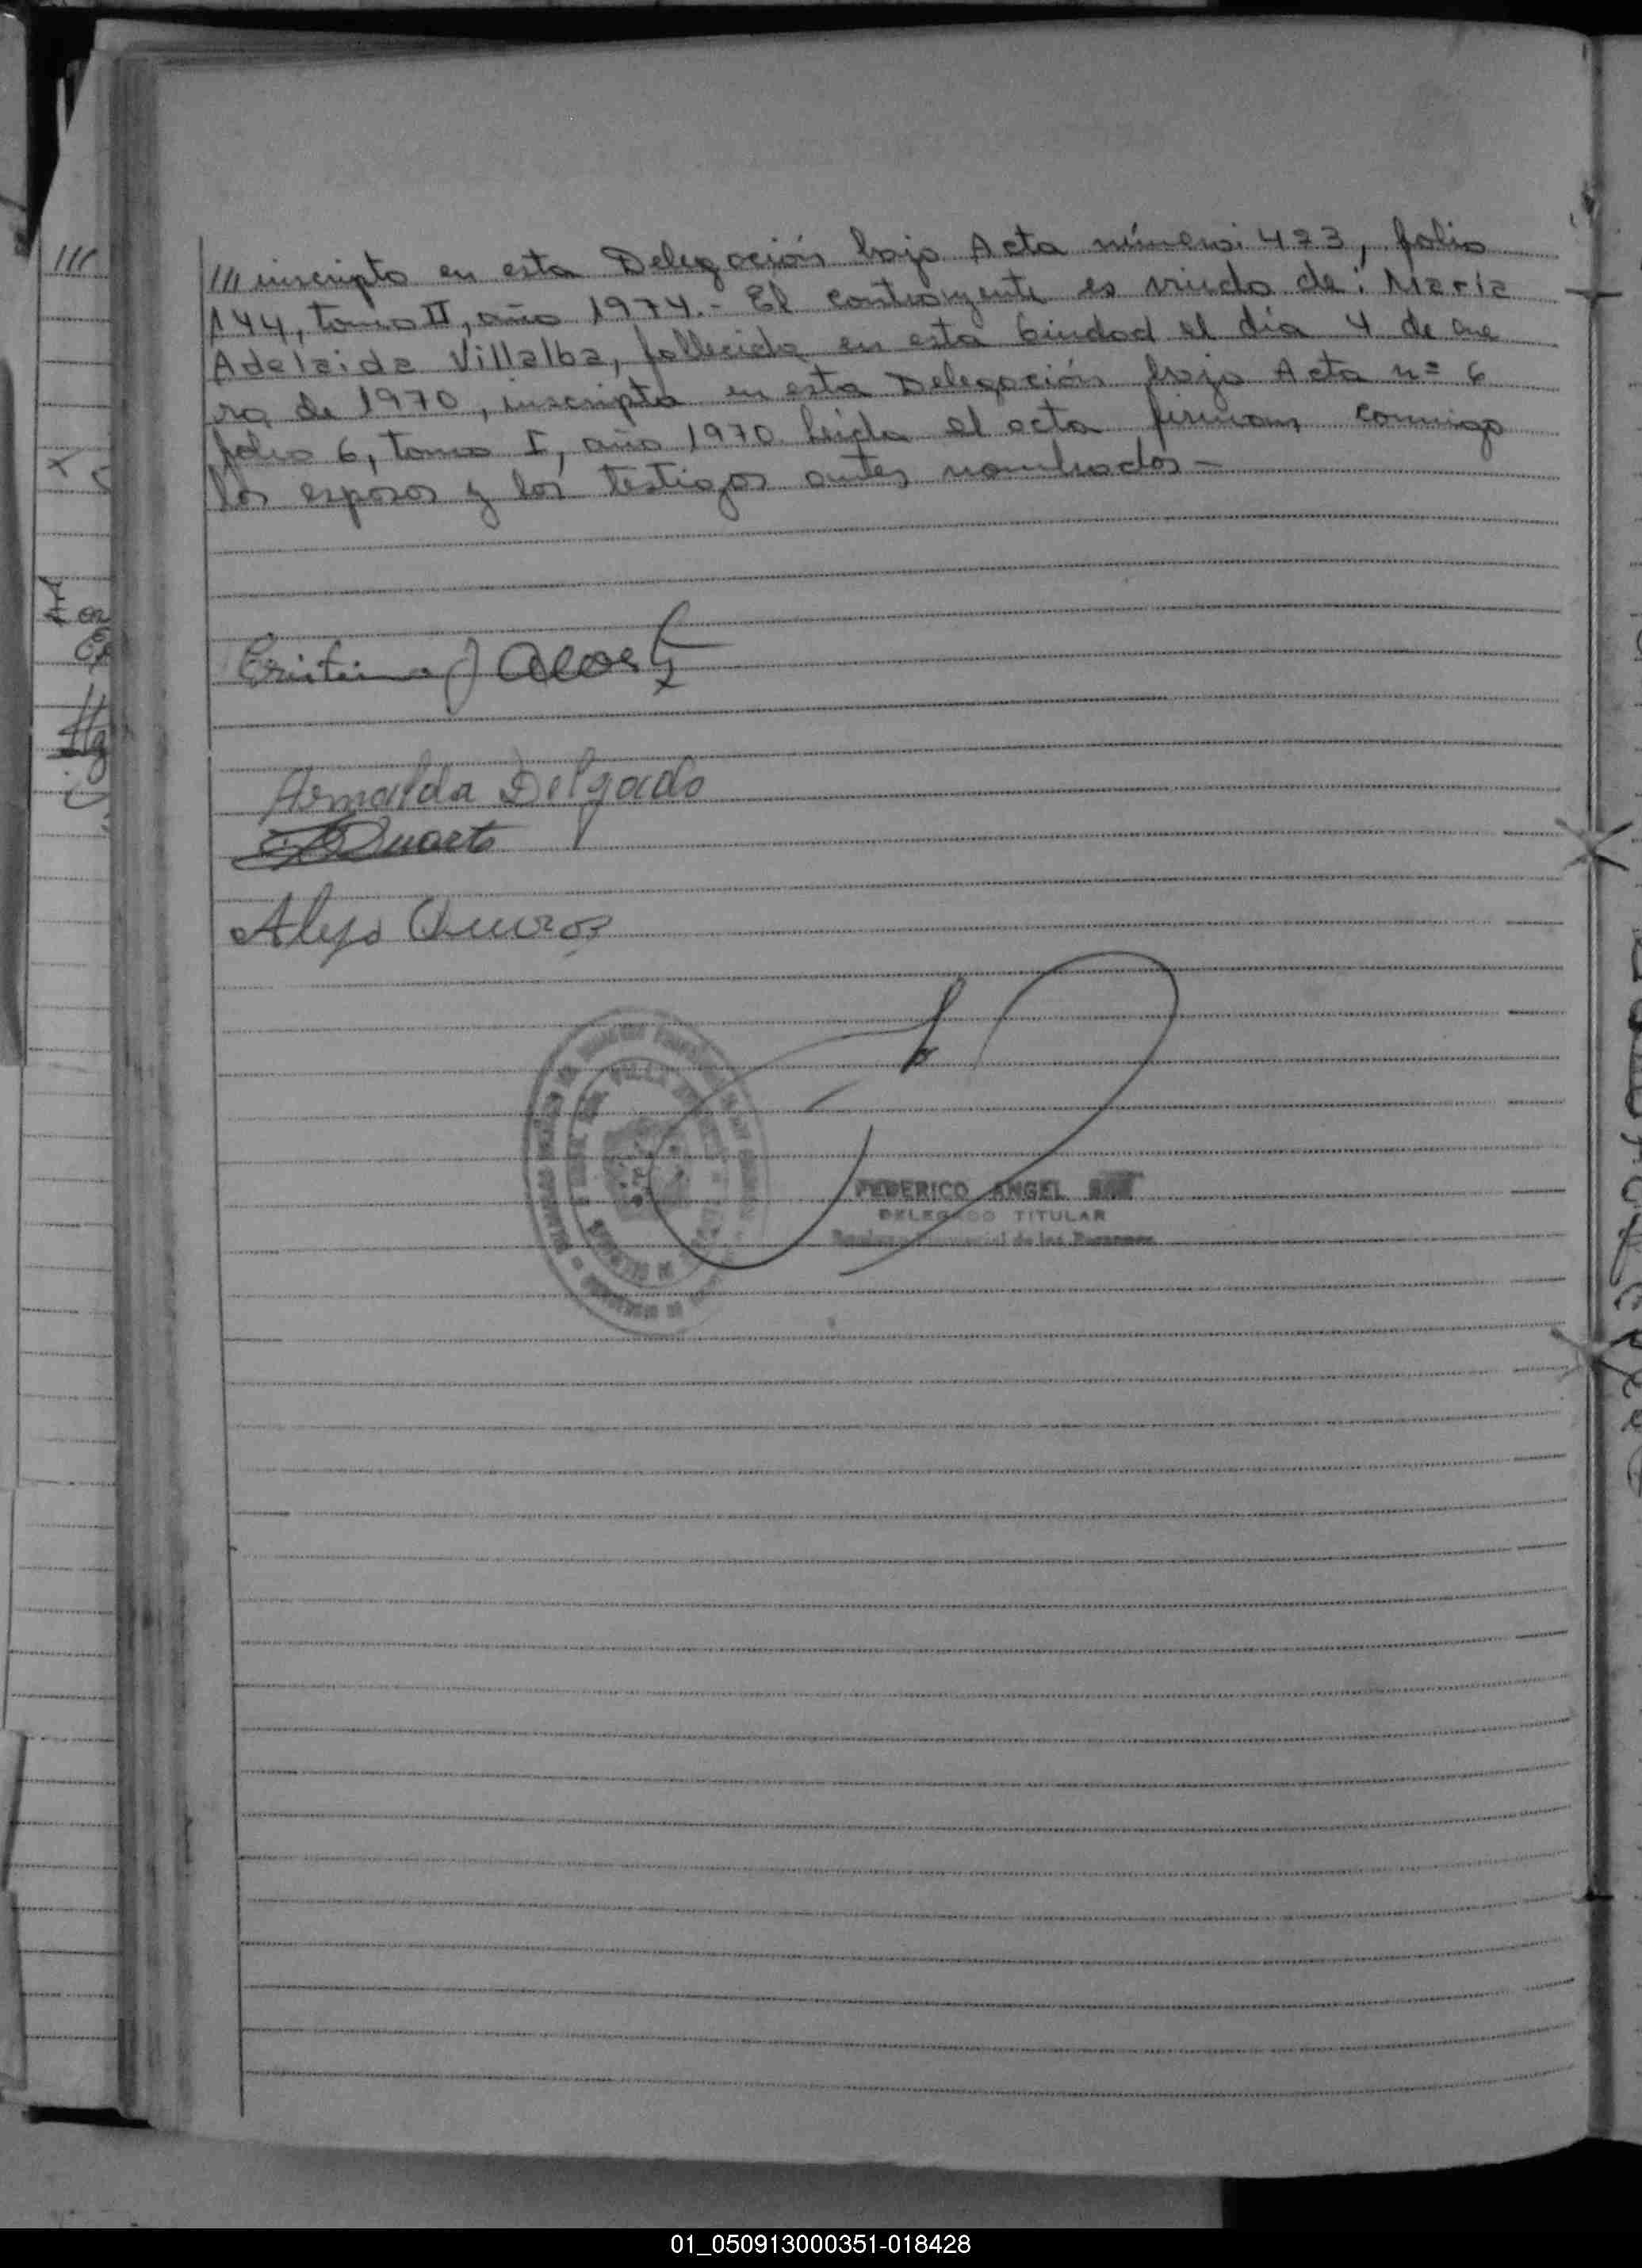 /// inscripto en esta Delegación bajo Acta número: 423, folio
144, tomo II, año 1974.- El contrayente es viudo de: María
Adelaida Villalba, fallecida en esta Ciudad el día 4 de ene
ro de 1970, inscripta en esta Delegación bajo Acta nº 6
folio 6, tomo I, año 1970. Leída el acta firman conmigo
los esposos y los testigos antes nombrados-
Cristina J Acosta
Arnalda Delgado
Duarte
Alejo Quiroz
FEDERICO ANGEL
DELEGADO TITULAR
de las Personas
///
01_050913000351-018428